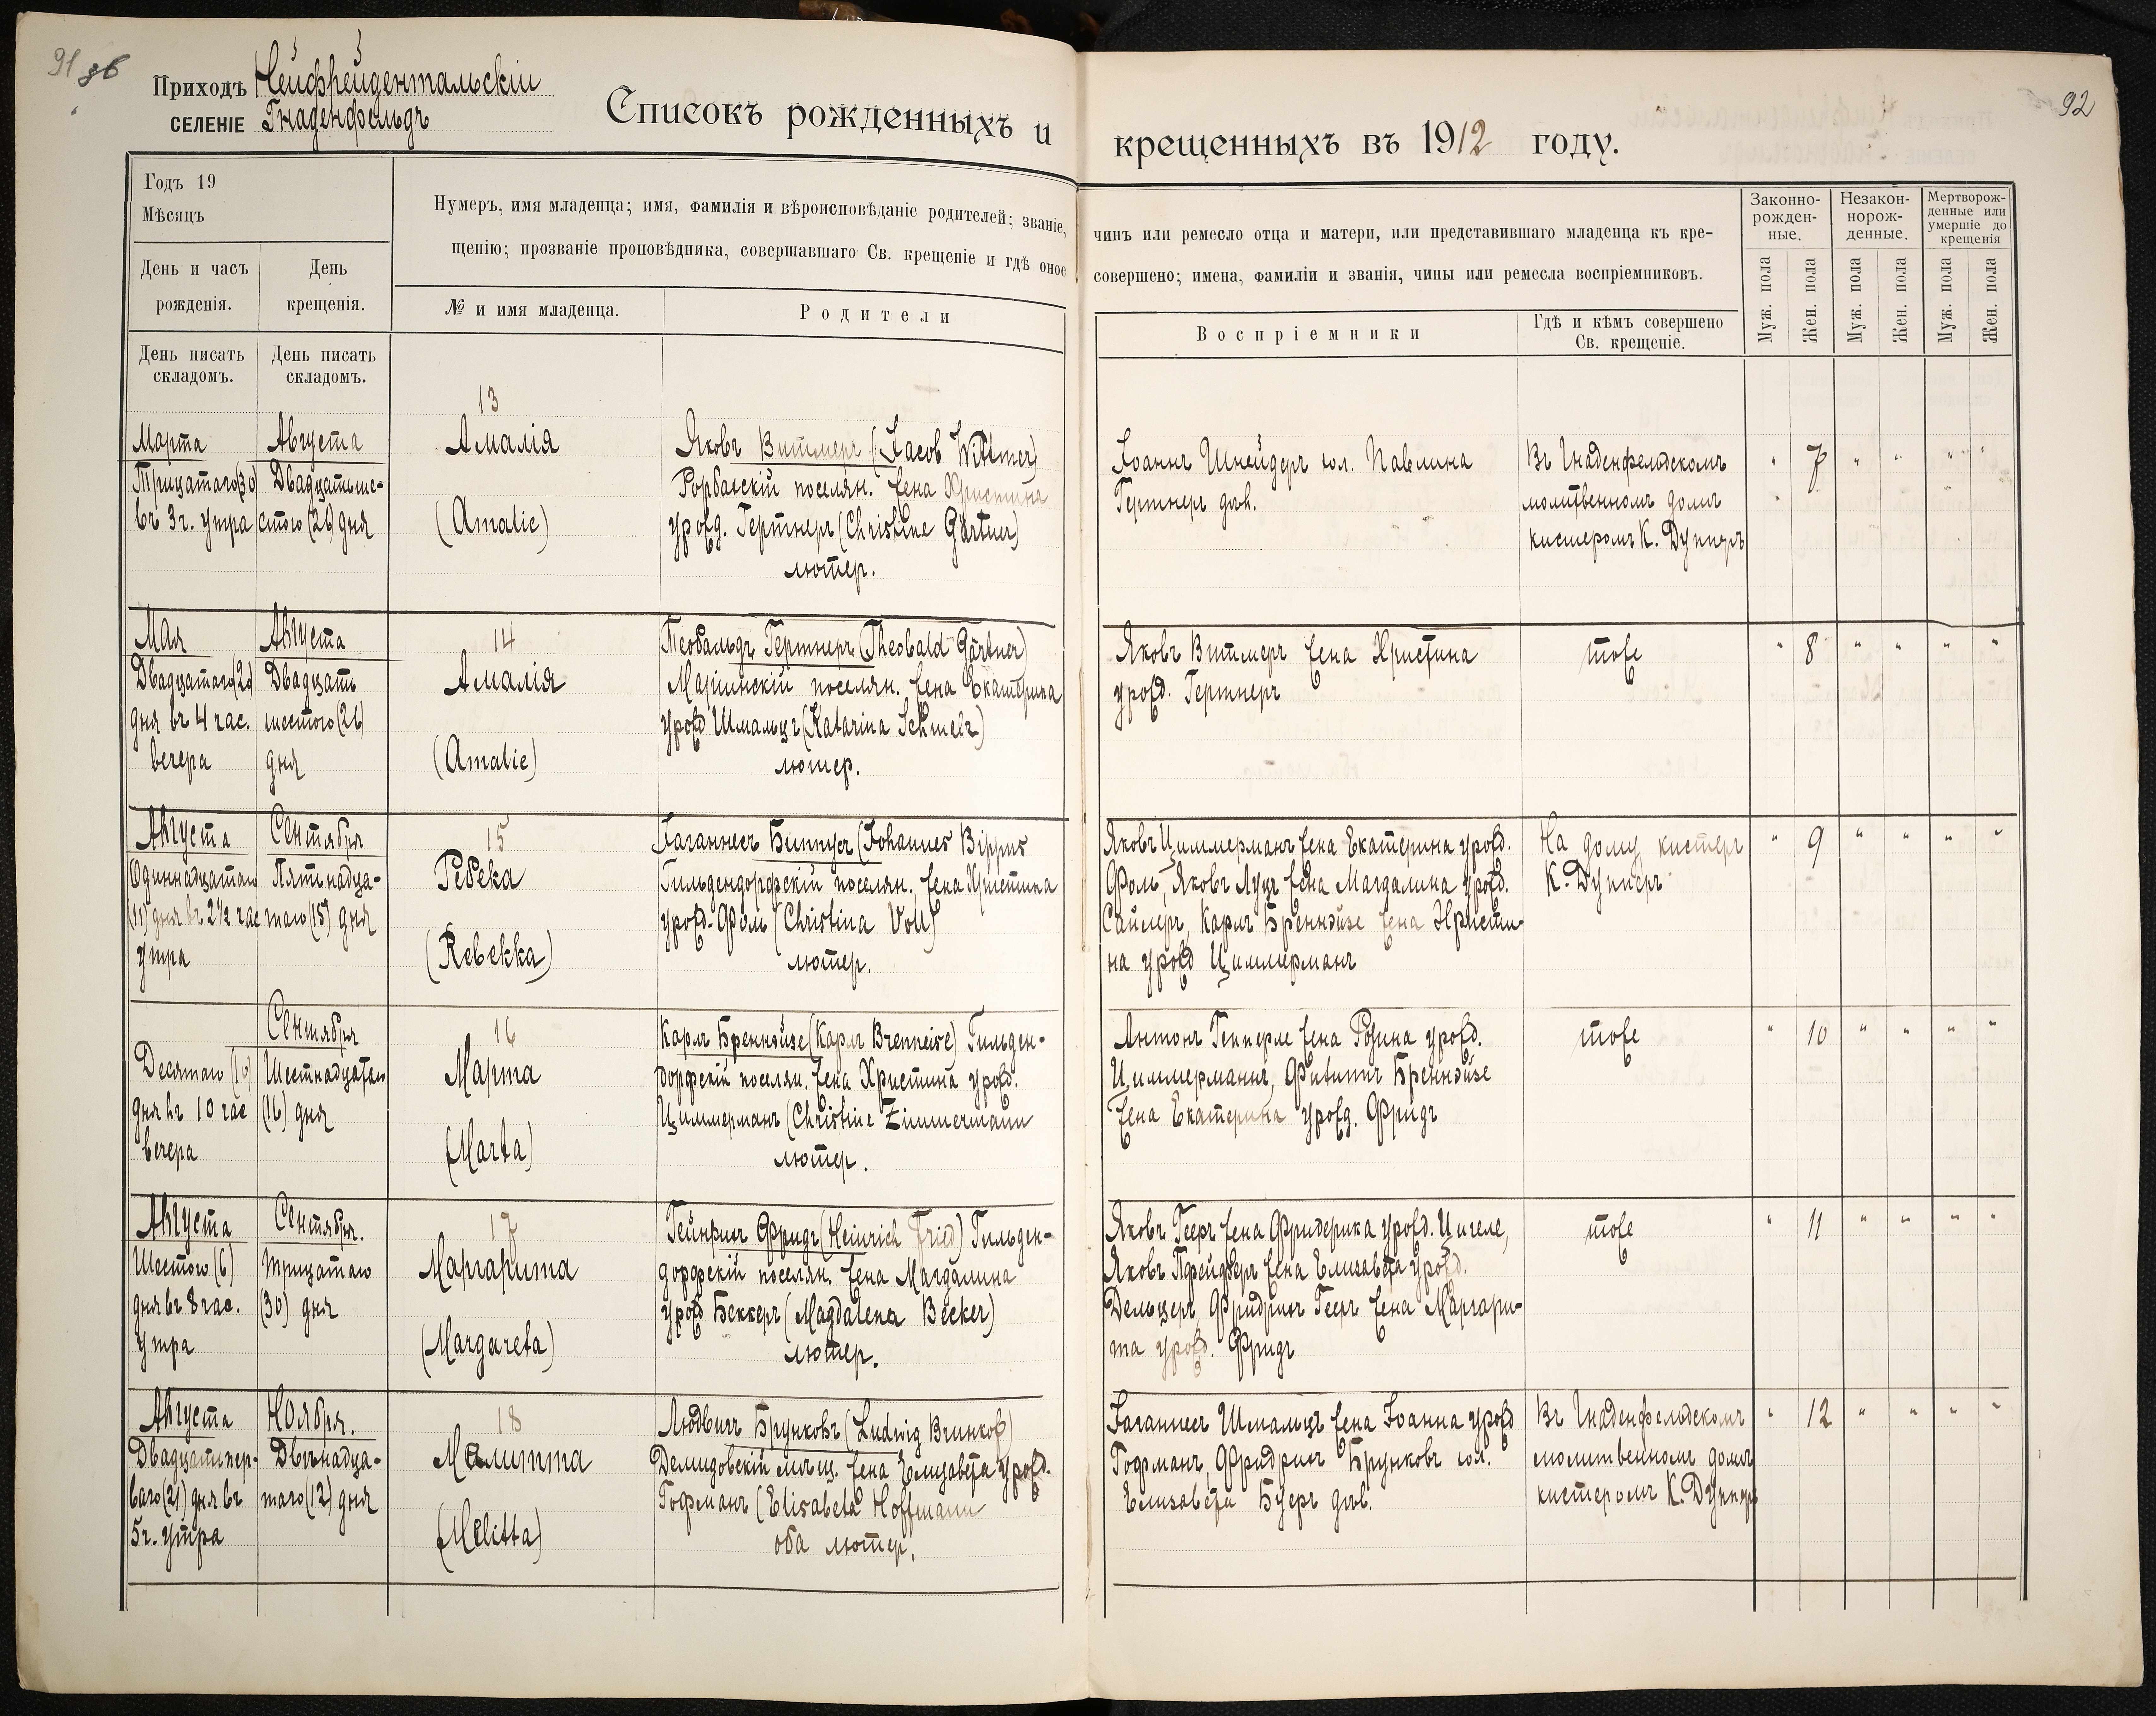 91 зв
92
Приходъ Нейфрейдентальскій
СЕЛЕНІЕ Гнаденфельдъ
Списокъ рожденныхъ и крещенныхъ въ 1912 году.
Годъ 19
Мѣсяцъ
День и часъ рожденія.
День крещенія.
Нумеръ, имя младенца; имя, фамилія и вѣроисповѣданіе родителей; званіе, чинъ или ремесло отца и матери, или представившаго младенца къ кре-
щенію; прозваніе проповѣдника, совершавшаго Св. крещеніе и гдѣ оное совершено; имена, фамиліи и званія, чины или ремесла воспріемниковъ.
№ и имя младенца.
Родители
Воспріемники
Гдѣ и кѣмъ совершено
Св. крещеніе.
Законно-
рожден-
ные.
Незакон-
норож-
денные.
Мертворож-
денные или
умершіе до
крещенія
Муж. пола
Жен. пола
Муж. пола
Жен. пола
Муж. пола
Жен. пола
День писать
складомъ.
День писать
складомъ.
Марта
Тридцатаго (30)
въ 3 ч. утра
Августа
Двадцатьше-
стого (26) дня
13
Амалія
(Amalie)
Яковъ Витмеръ (Jacob Wittmer)
Рорбахскій поселян. жена Христина
урожд. Гертнеръ (Christine Gärtner)
лютер.
Іоаннъ Шнейдеръ юл. Павлина
Гертнеръ дѣв.
Въ Гнаденфельдскомъ
молитвенномъ домѣ
кистеромъ К. Дупперъ
" 7 " " " "
Мая
Двадцатаго (20)
дня въ 4 час.
вечера
Августа
Двадцать
шестого (26)
дня
14
Амалія
(Amalie)
Теобальдъ Гертнеръ (Theobald Gärtner)
Маріинскій поселян. жена Екатерина
урожд Шмальцъ (Katarina Schmelz)
лютер.
Яковъ Витмеръ жена Христина
урожд. Гертнеръ
тоже
" 8 " " " "
Августа
Одиннадцатаго
(11) дня въ 2 1/2 час
утра
Сентября
Пятьнадца-
таго (15) дня
15
Ребека
(Rebekka)
Іоганнесъ Биппусъ (Johannes Bippus
Гильдендорфскій поселян. жена Христина
урожд. Фоль (Christina Voll)
лютер.
Яковъ Циммерманъ жена Екатерина урожд.
Фоль, Яковъ Луцъ жена Магдалина урожд.
Сайлеръ, Карлъ Бреннэйзе жена Христи-
на урожд Циммерманъ
На дому кистеръ
К. Дупперъ
" 9 " " " "
Десятаго (10)
дня въ 10 час
вечера
Сентября
Шестнадцатаго
(16) дня
16
Марта
(Marta)
Карлъ Бреннэйзе (Карлъ Brenneise) Гильден-
дорфскій поселян. жена Христина урожд.
Циммерманъ (Christine Zimmermann
лютер.
Антонъ Гепперле жена Розина урожд.
Циммерманъ, Филиппъ Бреннэйзе
жена Екатерина урожд. Фридъ
тоже
" 10 " " " "
Августа
Шестого (6)
дня въ 8 час.
утра
Сентября.
Тридцатаго
(30) дня
17
Маргарита
(Margareta)
Гейнрихъ Фридъ (Heinrich Fried) Гильден-
дорфскій поселян. жена Магдалина
урожд Беккеръ (Magdalena Becker)
лютер.
Яковъ Гееръ жена Фридерика урожд.
Яковъ Пфейферъ жена Елизавета урожд.
Дельцеръ, Фридрихъ Гееръ жена Маргари-
та урожд. Фридъ
тоже
" 11 " " " "
Августа
Двадцатьпер-
ваго (21) дня въ
5 ч. утра
Ноября.
Двѣнадца-
таго (12) дня
18
Мелитта
(Melitta)
Людвигъ Брунковъ (Ludwig Brunkof)
Демидовскій мѣщ. жена Елизавета урожд.
Гофманъ (Elisabeta Hoffmann
оба лютер.
Іоганнесъ Шмальцъ жена Іоанна урожд
Гофманъ, Фридрихъ Брунковъ юл.
Елизавета Буеръ дѣв.
Въ Гнаденфельдскомъ
молитвенномъ домѣ
кистеромъ К. Дупперъ
" 12 " " " "